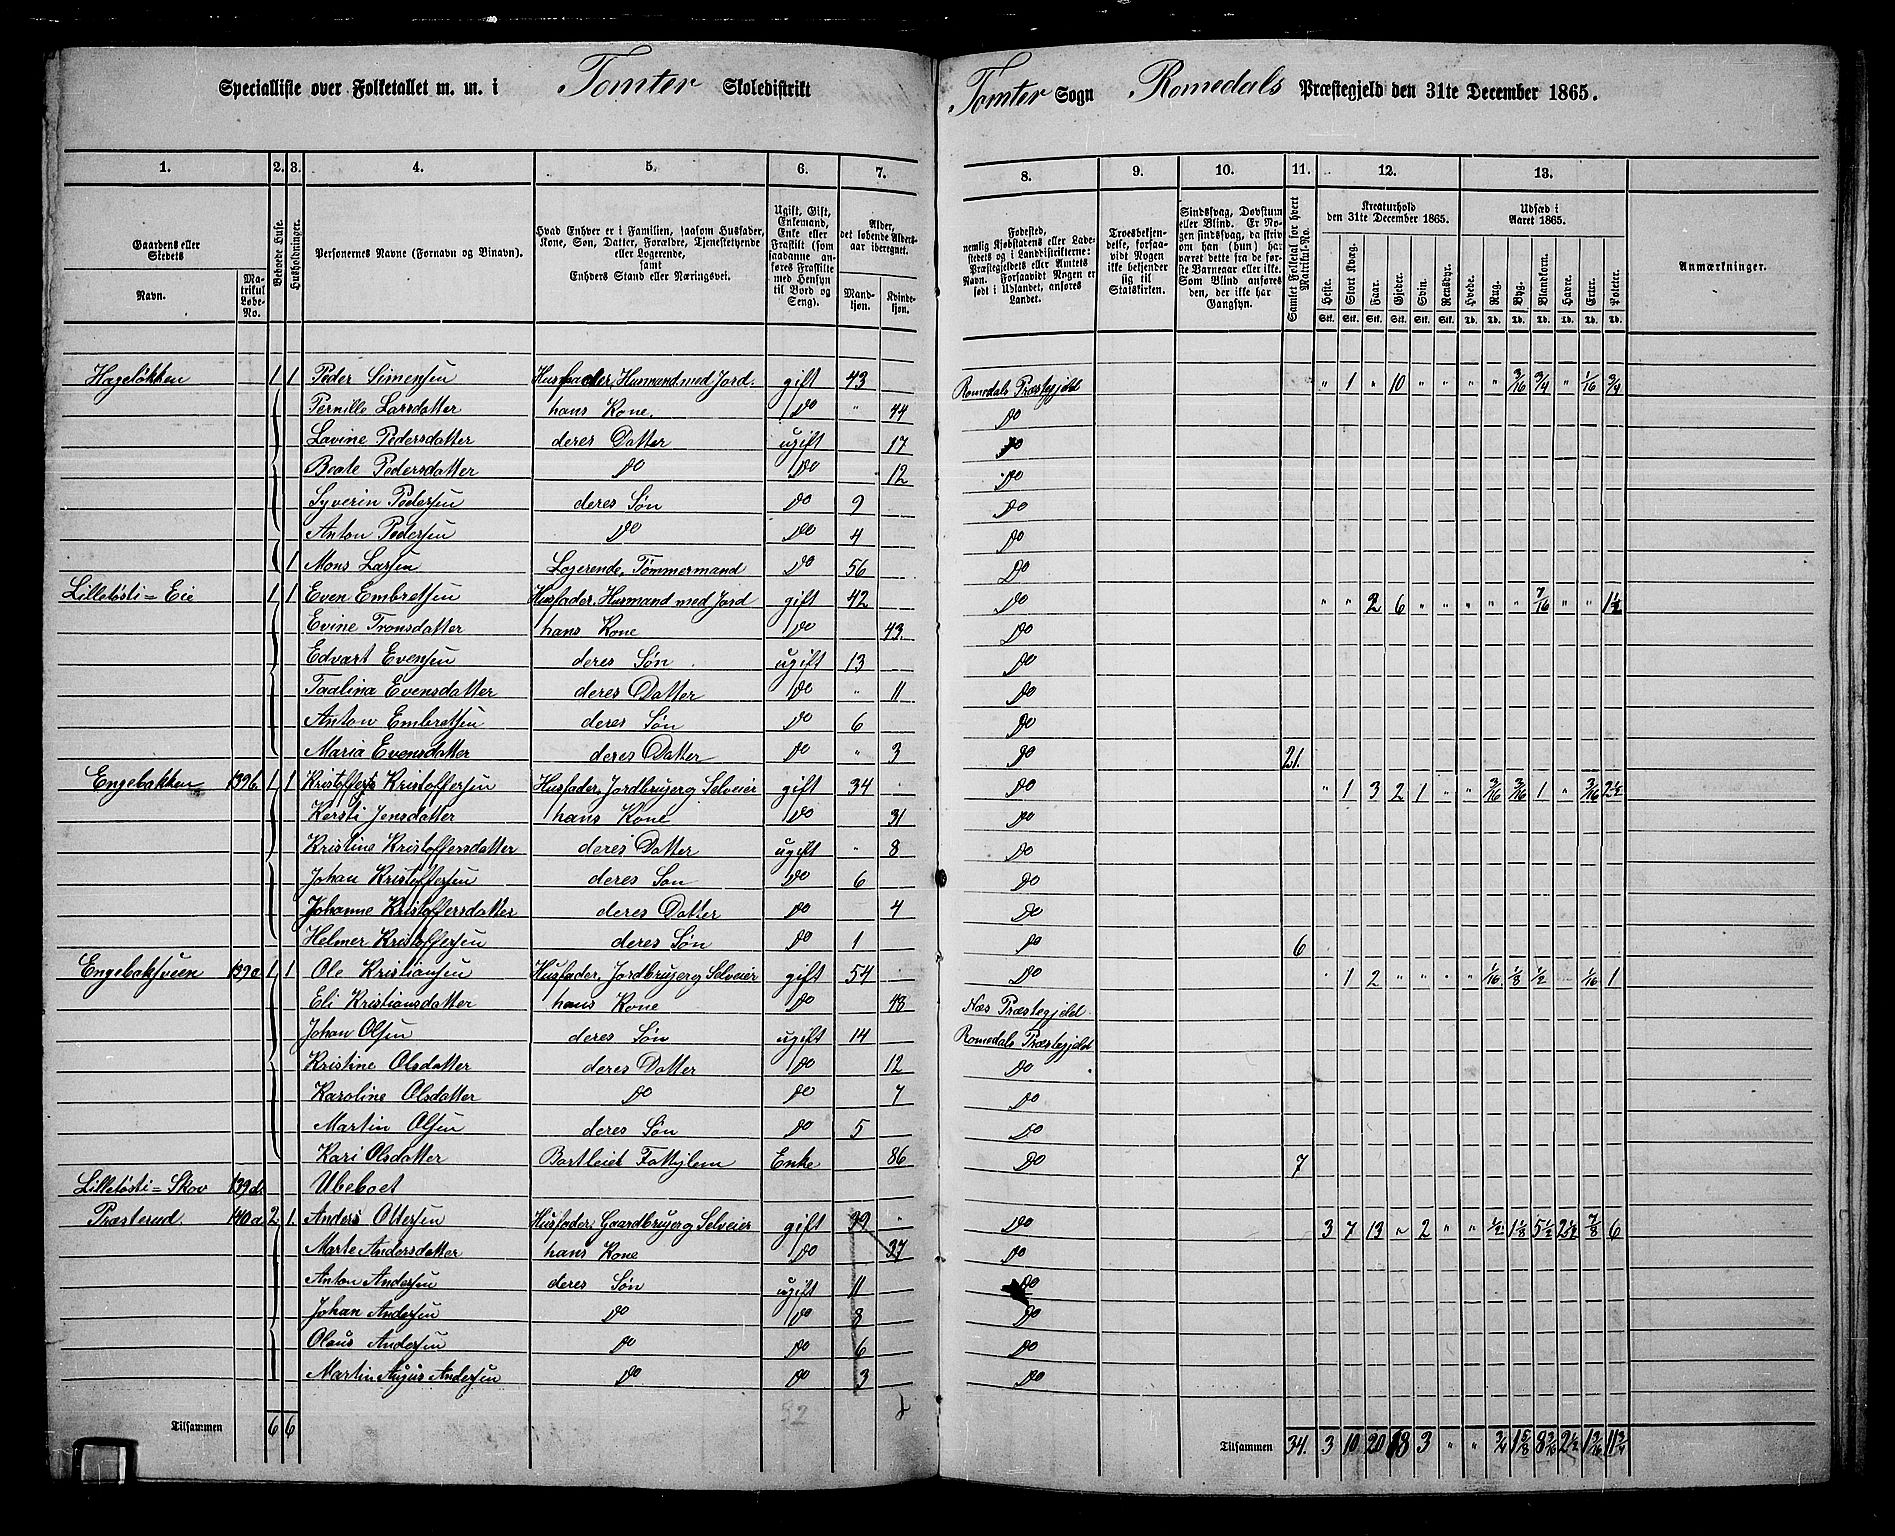 Specialliste over Folketallet m. m. i Tomter Skoledistrikt
Tomter Sogn Romedals Præstegjeld den 31te December 1865.
1. 2. 3. 4. 5. 6. 7. 8. 9. 10. 11. 12. 13.
Gaardens eller Stedets
Navn.
Matrikul Løbe-No.
Beboede Huse.
Husholdninger.
Personernes Navne (Fornavn og Binavn).
Hvad Enhver er i Familien, saasom Husfader, Kone, Søn, Datter, Forældre, Tjenestetyende eller Logerende, samt Enhvers Stand eller Næringsvei.
Ugift, Gift, Enkemand, Enke eller Fraskilt (som saadanne anføres Fraskilte med Hensyn til Bord og Seng).
Alder, det løbende Aldersaar iberegnet.
Mandkjøn. Kvindekjøn.
Fødested, nemlig Kjøbstadens eller Ladestedets og i Landdistrikterne: Præstegjeldets eller Amtets Navn. Forsaavidt Nogen er født i Udlandet, anføres Landet.
Troesbekjendelse, forsaavidt Nogen ikke bekjender sig til Statskirken.
Sindssvag, Døvstum eller Blind. Er Nogen sindssvag, da skriv om han (hun) har været dette fra de første Barneaar eller ikke. Som Blind anføres den, der ikke har Gangsyn.
Samlet Folketal for hvert Matrikul-No.
Kreaturhold den 31te December 1865.
Heste. Stort Kvæg. Faar. Gjeder. Svin. Rensdyr.
Udsæd i Aaret 1865.
Hvede. Rug. Byg. Blandkorn. Havre. Erter. Poteter.
Anmærkninger.
Stk. Stk. Stk. Stk. Stk. Stk. Td. Td. Td. Td. Td. Td. Td.
Hageløkken 1 1 Peder Simensen Husfader, Husmand med Jord. gift 43 Romedals Præstegjeld " 1 " 10 " " " " 3/16 3/4 " 1/16 3/4
Pernille Larsdatter hans Kone. Do " 44 Do
Lavine Pedersdatter deres Datter ugift 17 Do
Beate Pedersdatter Do Do 12 Do
Syverin Pedersen deres Søn Do 9 Do
Anton Pedersen Do Do 4 Do
1 Mons Larsen Logerende, Tømmermand Do 56 Do
Lilletøsti=Eie 1 1 Even Embretsen Husfader, Husmand med Jord gift 42 Do " " 2 6 " " " " " 7/16 " " 1 1/2
Evine Tronsdatter hans Kone Do 43 Do
Edvart Evensen deres Søn ugift 13 Do
Tadlina Evensdatter deres Datter Do " 11 Do
Anton Embretsen deres Søn Do 6 Do
Maria Evensdatter deres Datter Do " 3 Do 21.
Engebakken 139b. 1 1 Kristoffer Kristoffersen Husfader, Jordbruger og Selveier gift 34 Do " 1 3 2 1 " " 3/16 3/16 1 " 3/16 2 1/2
Kersti Jensdatter hans Kone Do 31 Do
Kristine Kristoffersdatter deres Datter ugift " 8 Do
Johan Kristoffersen deres Søn Do 6 Do
Johanne Kristoffersdatter deres Datter Do 4 Do
Helmer Kristoffersen deres Søn Do 1 Do 6
Engebaksveien 139c 1 1 Ole Kristiansen Husfader, Jordbruger og Selveier gift 54 Do " 1 2 " " " " 1/16 1/8 1/2 1/16 1
Eli Kristiansdatter hans Kone Do 48 Næs Præstegjeld.
Johan Olsen deres Søn ugift 14 Romedals Præstegjeld
Kristine Olsdatter deres Datter Do 12 Do
Karoline Olsdatter Do Do 7 Do
Martin Olsen deres Søn Do 5 Do
Kari Olsdatter Enke 86 Do 7
Lilletøsti=Skov 139d. Ubeboet
Præsterud. 140a 2 1. Anders Ottersen Husfader, Gaardbruger og Selveier gift 39 Do 3 7 13 " 2 " " 1/2 1 1/8 5 1/2 2 1/2 7/8 6
Marte Andersdatter hans Kone Do 37 Do
Anton Andersen deres Søn ugift 11 Do
Johan Andersen Do Do 8 Do
Olaus Andersen Do Do 6 Do
Martin Augus Andersen Do Do 3 Do
Tilsammen 6 6 92
Tilsammen 34. 3 10 20 18 3 " " 3/4 1 5/8 8 3/16 2 1/2 1 3/16 11 3/4